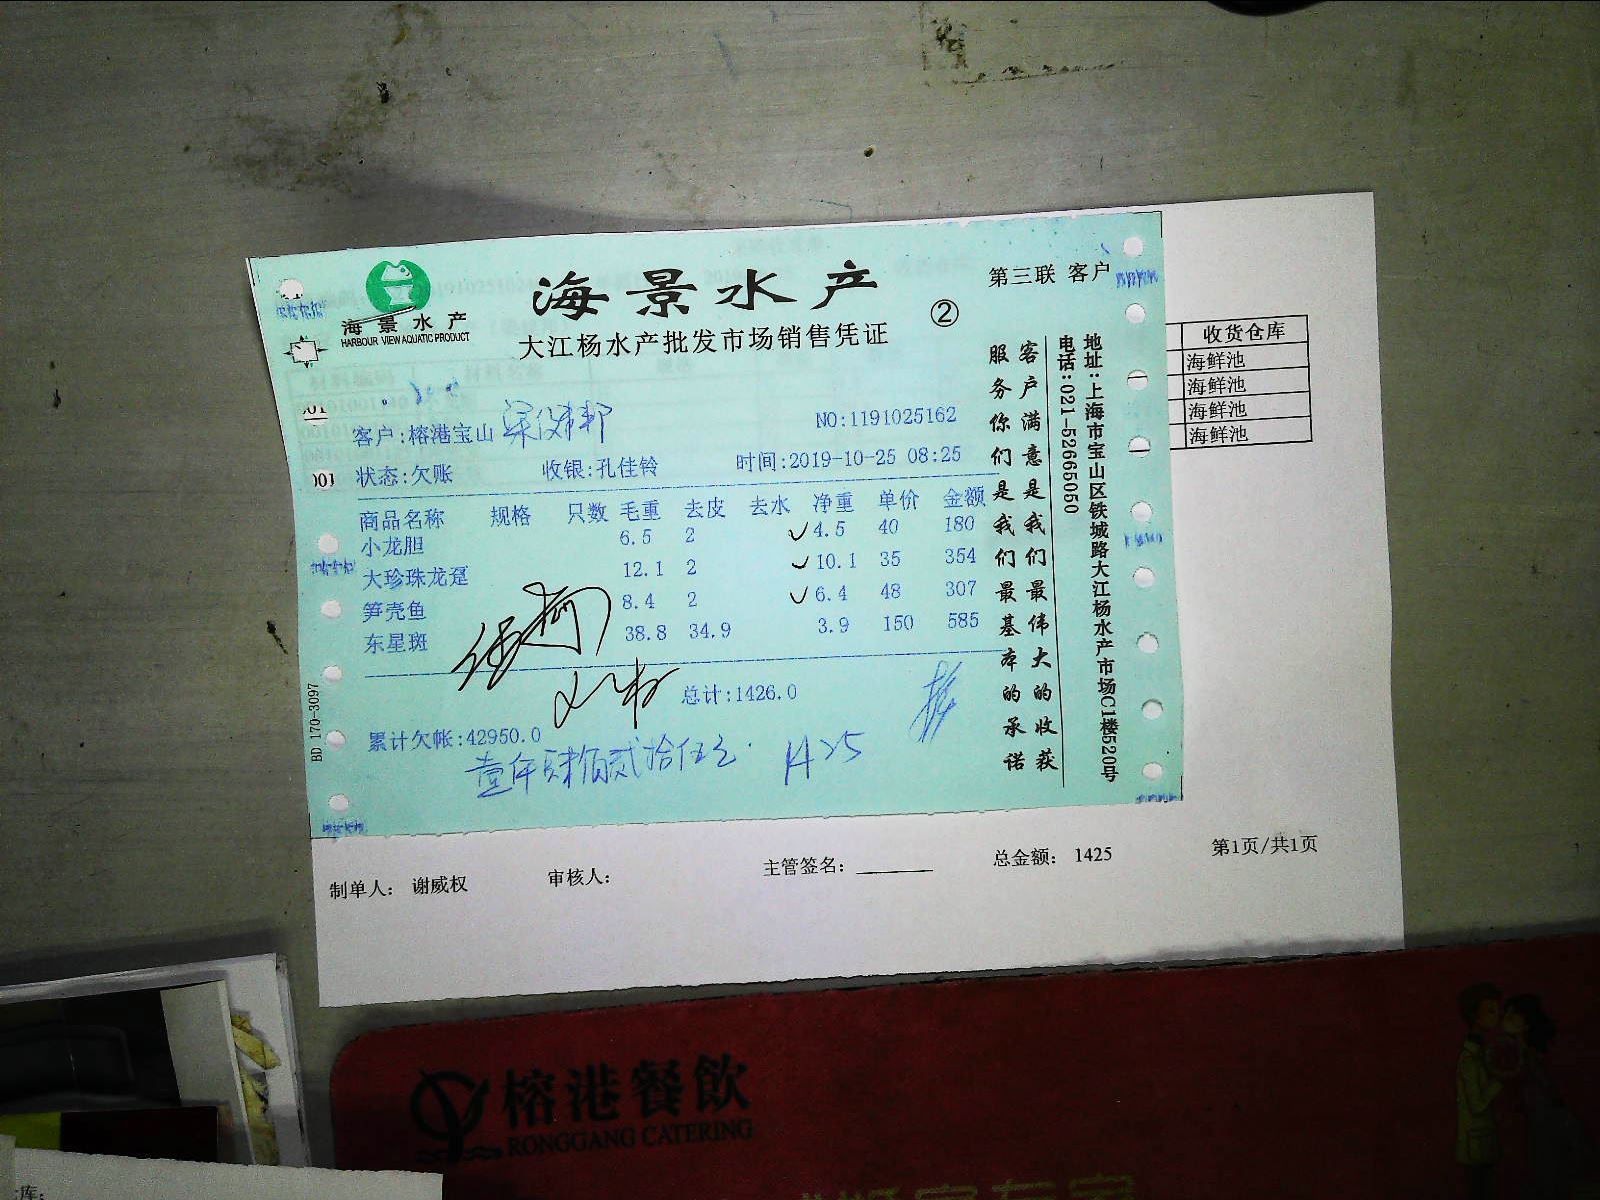 海景水产
HARBOUR VIEW AQUATIC PRODUCT
海景水产
大江杨水产批发市场销售凭证
②
第三联 客户
客户:榕港宝山
NO:1191025162
状态:欠账 收银:孔佳铃 时间:2019-10-25 08:25
商品名称 规格 只数 毛重 去皮 去水 净重 单价 金额
小龙胆 6.5 2 4.5 40 180
大珍珠龙趸 12.1 2 10.1 35 354
笋壳鱼 8.4 2 6.4 48 307
东星斑 38.8 34.9 3.9 150 585
总计:1426.0
累计欠帐:42950.0
壹仟肆佰贰拾伍元 1425
客户满意是我们最伟大的收获
服务你们是我们最基本的承诺
地址:上海市宝山区铁城路大江杨水产市场C1楼520号
电话:021-52665050
BD 170-3097
001
收货仓库
海鲜池
海鲜池
海鲜池
海鲜池
制单人: 谢威权 审核人: 主管签名: 总金额: 1425 第1页/共1页
榕港餐飲
RONGGANG CATERING
库: